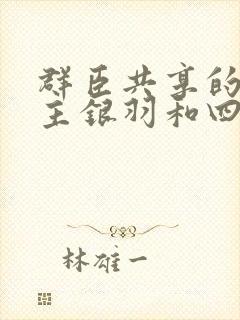 群臣共享的
王银羽和四
林雄一